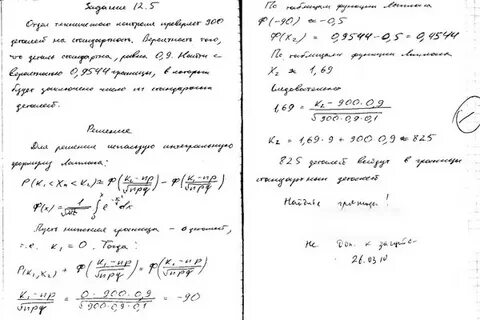 Задание 12.5
Отдел технического контроля проверяет 900
деталей на стандартность. Вероятность того,
что деталь стандартна, равна 0,9. Найти с
вероятностью 0,9544 границы, в которых
будет заключено число m стандартных
деталей.
Решение
Для решения использую интегральную
формулу Лапласа:
P(K₁ < Xₙ < K₂) = Ф(K₂-np/√npq) - Ф(K₁-np/√npq)
Ф(x) = 1/√2π ∫₀ˣ e dx
Пусть нижняя граница - 0 деталей,
т.е. K₁ = 0. Тогда:
P(K₁,X₂) + Ф(K₁-np/√npq) = Ф(K₂-np/√npq)
K₁-np/√npq = 0-900·0,9/√900·0,9·0,1 = -90
По таблицам функции Лапласа
Ф(-90) ≈ -0,5
Ф(X₂) = 0,9544 - 0,5 = 0,4544
По таблицам функции Лапласа
X₂ ≈ 1,69
Следовательно
1,69 = K₂-900·0,9/√900·0,9·0,1
K₂ = 1,69·9 + 900·0,9 ≈ 825
825 деталей войдут в границы
стандартных деталей
границы!
Не Доп. к защите
26.03.10